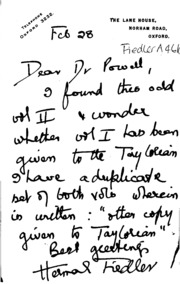 TELEPHONE
OXFORD 2230.
THE LANE HOUSE,
NORHAM ROAD,
OXFORD.
Feb 28
Fiedler A466
Dear Dr Powell,
I found this odd
vol II & wonder
whether vol I has been
given to the Taylorian
I have a duplicate
set of both vols wherein
is written: "other copy
given to Taylorian".
Best greetings,
Herma E Fiedler